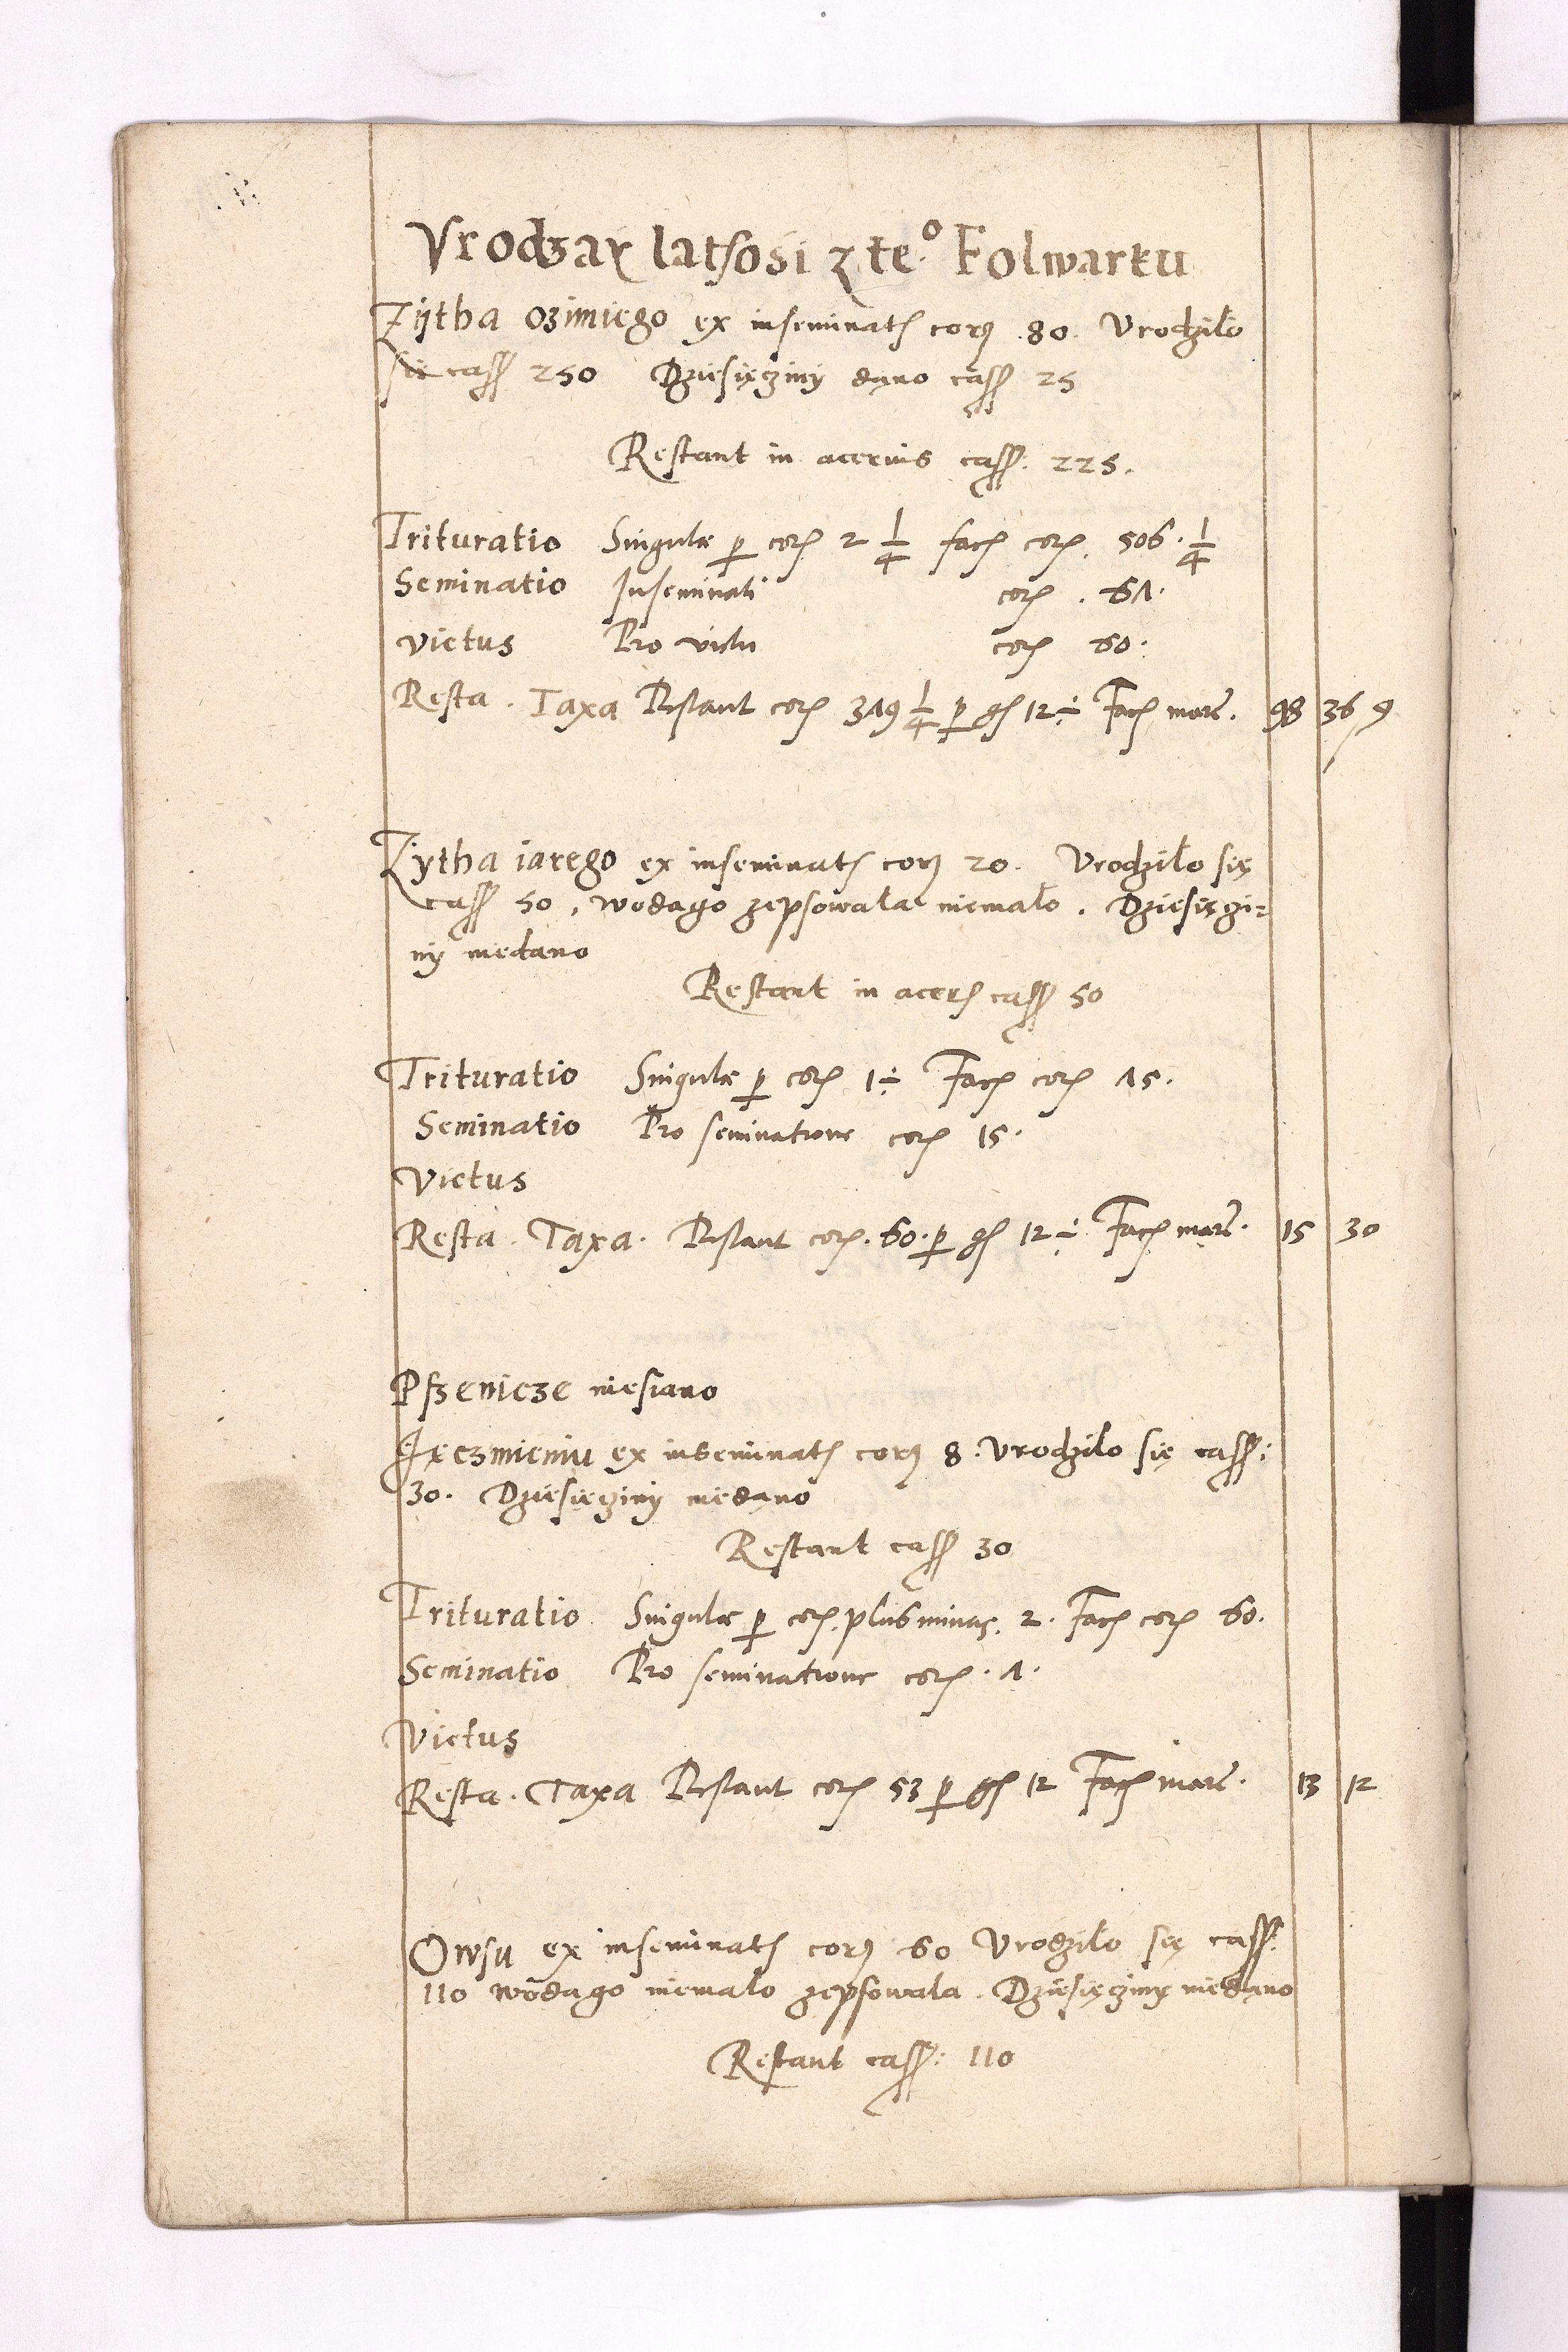 Vrodzaÿ lathosi z te.° Folwarku
Zÿtha ozimiego ex inseminatis coris 80. Vrodziło
się cass 250 Dziesięcziny dąno cass 25
Restant in aceruis cass: 225.
Trituratio Singulæ p cor 2 1/4 fac cor. 506. 1/4
Seminatio Inseminati cor . 67.
victus Pro victu cor 60.
Resta . Taxa Restant cor 379 1/4 p gs 12 ÷ Fac marc. 98 36 9
Zytha iarego ex inseminat cor 20. Vrodziło się
cass 50, wodago zepsowała niemało. Dziesięczi=
ny niedano
Restant in acer cass 50
Trituratio Singulæ p cor 1 ÷ Fac cor 75.
Seminatio Pro seminatione cor 15.
Victus
Resta . Taxa. Restant cor. 60. p gs 12 ÷ Fac marc. 15 30
Pszenicze niesiano
Jęczmieniu ex inseminat cor 8. Vrodziło się cass:
30. Dziesięcziny niedąno
Restant cass 30
Trituratio Singulæ p cor. plus minus. 2. Fac cor 60.
Seminatio Pro seminatione cor . 7.
Victus
Resta . Taxa Restant cor 53 p gs 12 Fac marc. 13 12
Owsu ex inseminat cor 60 Vrodziło się cass:
110 wodago niemało zepsowała. Dziesięcziny niedąno
Restant cass: 110